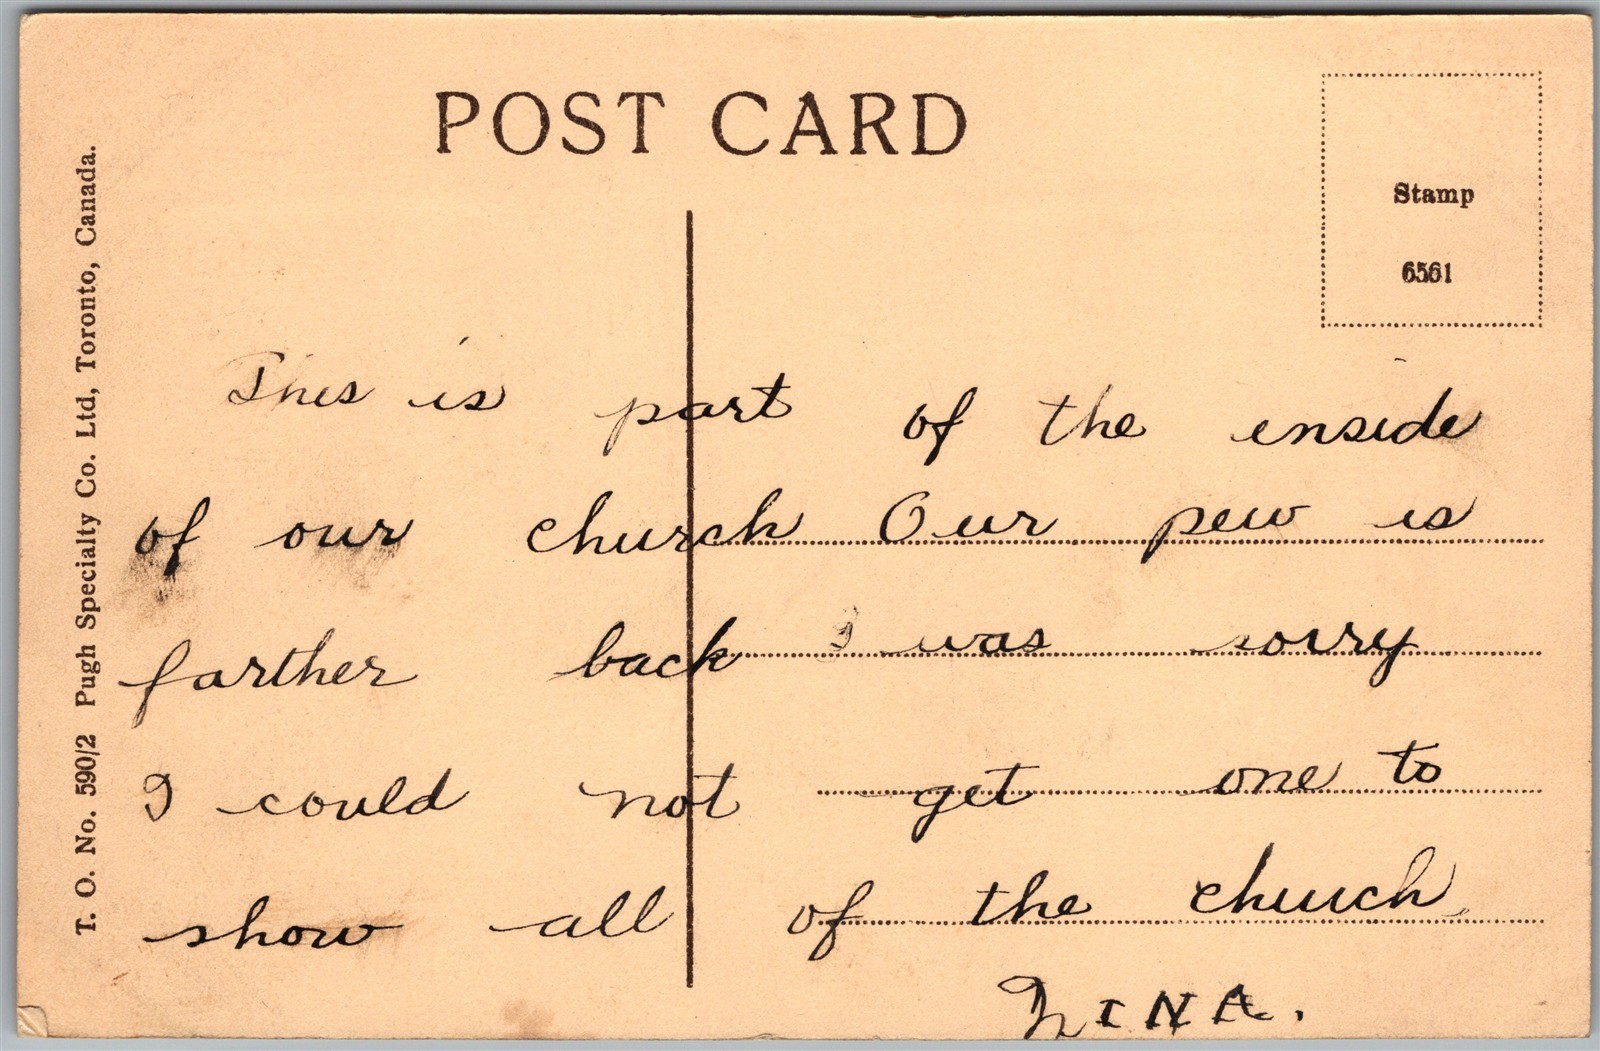 POST CARD
Stamp
6561
This is part of the inside
of our church Our pew is
farther back I was sorry
I could not get one to
show all of the church
NINA.
T. O. No. 590/2 Pugh Specialty Co. Ltd, Toronto, Canada.